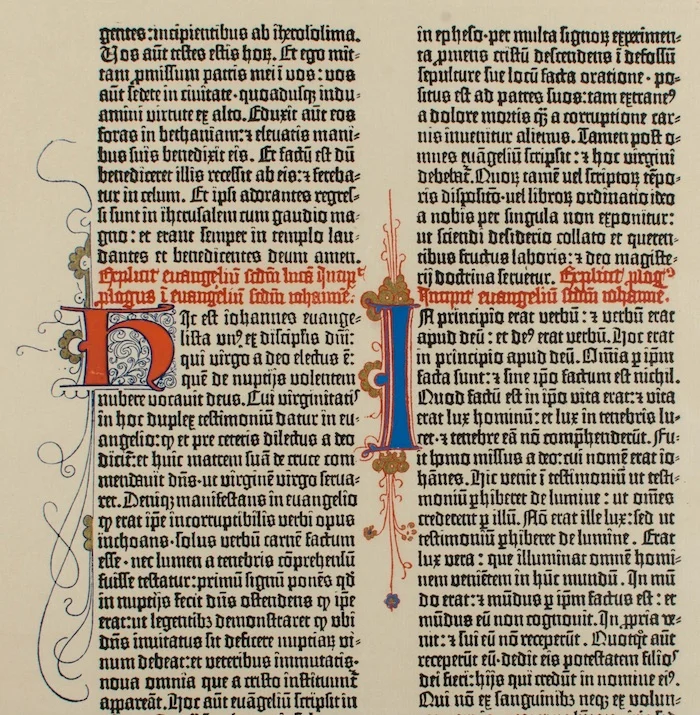 gentes: incipientibus ab iherosolima.
Vos aūt testes estis hoꝝ. Et ego mit-
tam ꝓmissum patris mei ī vos: vos
aūt sedete in civitate · quoadusqꝫ indu-
amini virtute ex alto. Eduxit aūt eos
foras in bethaniam: ⁊ elevatis mani-
bus suis benedixit eis. Et factū est dū
benediceret illis recessit ab eis: ⁊ fereba-
tur in celum. Et ipsi adorantes regres-
si sunt in iherusalem cum gaudio ma-
gno: et erant semper in templo lau-
dantes et benedicentes deum amen.
Explicit euangeliū scdm lucā Incipit
ꝓlogus ī euangeliū scdm iohanne:
Hic est iohannes euange-
lista vnꝰ ex discipĺis dnī:
qui virgo a deo electus ē:
quē de nuptijs volentem
nubere vocavit deus. Cui virginitatꝭ
in hoc duplex testimoniū datur in eu-
angelio: ꝙ et pre ceteris dilectus a deo
dicit̃: et huic matrem suā de cruce com-
mendavit dn̄s · ut virginē virgo serva-
ret. Deniqꝫ manifestans in euangelio
ꝙ erat ip̄e incorruptibilis verbi opus
inchoans · solus verbū carnē factum
esse · nec lumen a tenebris cōprehensū
fuisse testatur: primū signū ponēs qd̄
in nuptijs fecit dn̄s ostendens ꝙ ip̄e
erat: ut legentibꝫ demonstraret ꝙ vbi
dn̄s invitatus sit deficere nuptiaꝝ vi-
num debeat: et veteribus immutatis ·
nova omnia que a cristo instituunt̃
appareāt. Hoc aūt euāgeliū scripsit in
in epheso · per multa signoꝝ experimen-
ta ꝓmēns cristū descendens ī defossū
sepulture sue locū facta oratione · po-
situs est ad patres suos: tam extraneꝰ
a dolore mortis qꝫ̄ a corruptione car-
nis invenitur alienus. Tamen post o-
mnes euāgeliū scripsit: ⁊ hoc virgini
debebat̃. Quoꝝ tamē vel scriptoꝝ tēpo-
ris dispositō · vel libroꝝ ordinatio ideo
a nobis per singula non exponitur:
ut sciendi desiderio collato et queren-
tibus fructus laboris: ⁊ deo magiste-
rij doctrina servetur. Explicit ꝓlogꝰ
Incipit euangeliū scdm iohanne.
In principio erat verbū: ⁊ verbū erat
apud deū: et deꝰ erat verbū. Hoc erat
in principio apud deū. Omīa ꝑ ip̄m
facta sunt: ⁊ sine ip̄o factum est nichil.
Quod factū est in ip̄o vita erat: ⁊ vita
erat lux hominū: et lux in tenebris lu-
cet · ⁊ tenebre eā nō comp̄henderūt. Fu-
it homo missus a deo: cui nomē erat io-
hānes. Hic venit ī testimoniū ut testi-
moniū ꝑhiberet de lumine: ut om̄es
crederent ꝑ illū. Nō erat ille lux: sed ut
testimoniū ꝑhiberet de lumīne. Erat
lux vera: que illuminat omnē homi-
nem veniētem in hūc mundū. In mū-
do erat: ⁊ mūdus ꝑ ip̄m factus est: et
mūdus eū non cognovit. In ꝓpria ve-
nit: ⁊ sui eū nō receperūt. Quotqt̄ aūt
receperūt eū · dedit eis potestatem filioꝭ
dei fieri: hijs qui credūt in nomine eiꝰ.
Qui nō ex sanguinibꝫ neqꝫ ex volun-